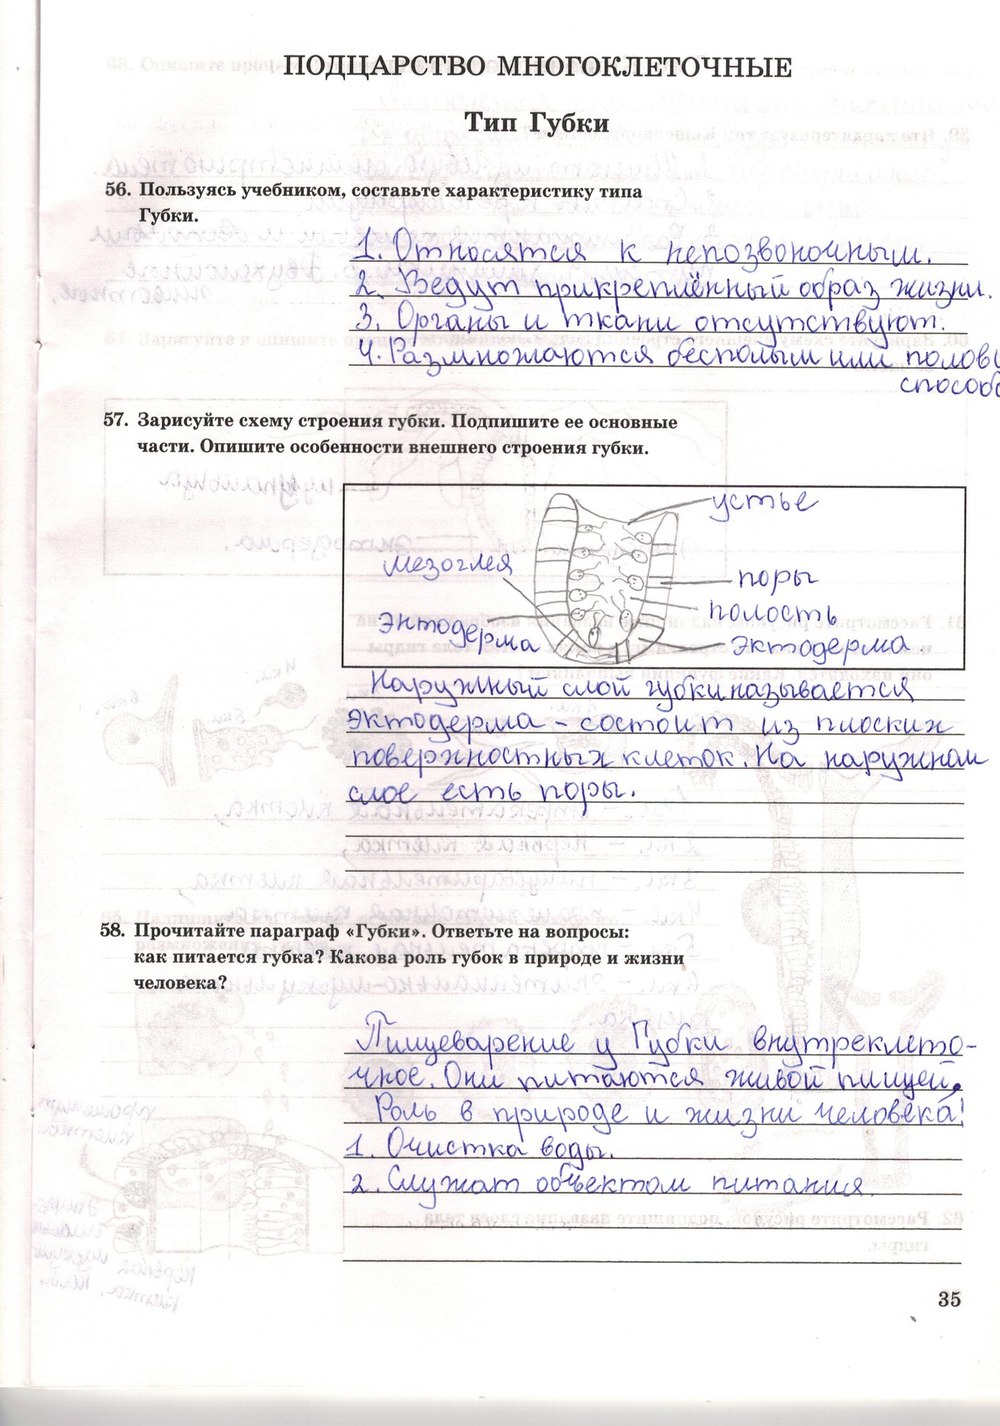 ПОДЦАРСТВО МНОГОКЛЕТОЧНЫЕ
Тип Губки
56. Пользуясь учебником, составьте характеристику типа
Губки.
1. Относятся к непозвоночным.
2. Ведут прикреплённый образ жизни.
3. Органы и ткани отсутствуют.
4. Размножаются бесполым или полов
способо
57. Зарисуйте схему строения губки. Подпишите ее основные
части. Опишите особенности внешнего строения губки.
устье
мезоглея
поры
полость
Энтодерма
эктодерма.
Наружный слой губки называется
эктодерма – состоит из плоских
поверхностных клеток. На наружном
слое есть поры.
58. Прочитайте параграф «Губки». Ответьте на вопросы:
как питается губка? Какова роль губок в природе и жизни
человека?
Пищеварение у Губки внутреклето-
чное. Они питаются живой пищей.
Роль в природе и жизни человека!
1. Очистка воды.
2. Служат объектом питания.
35